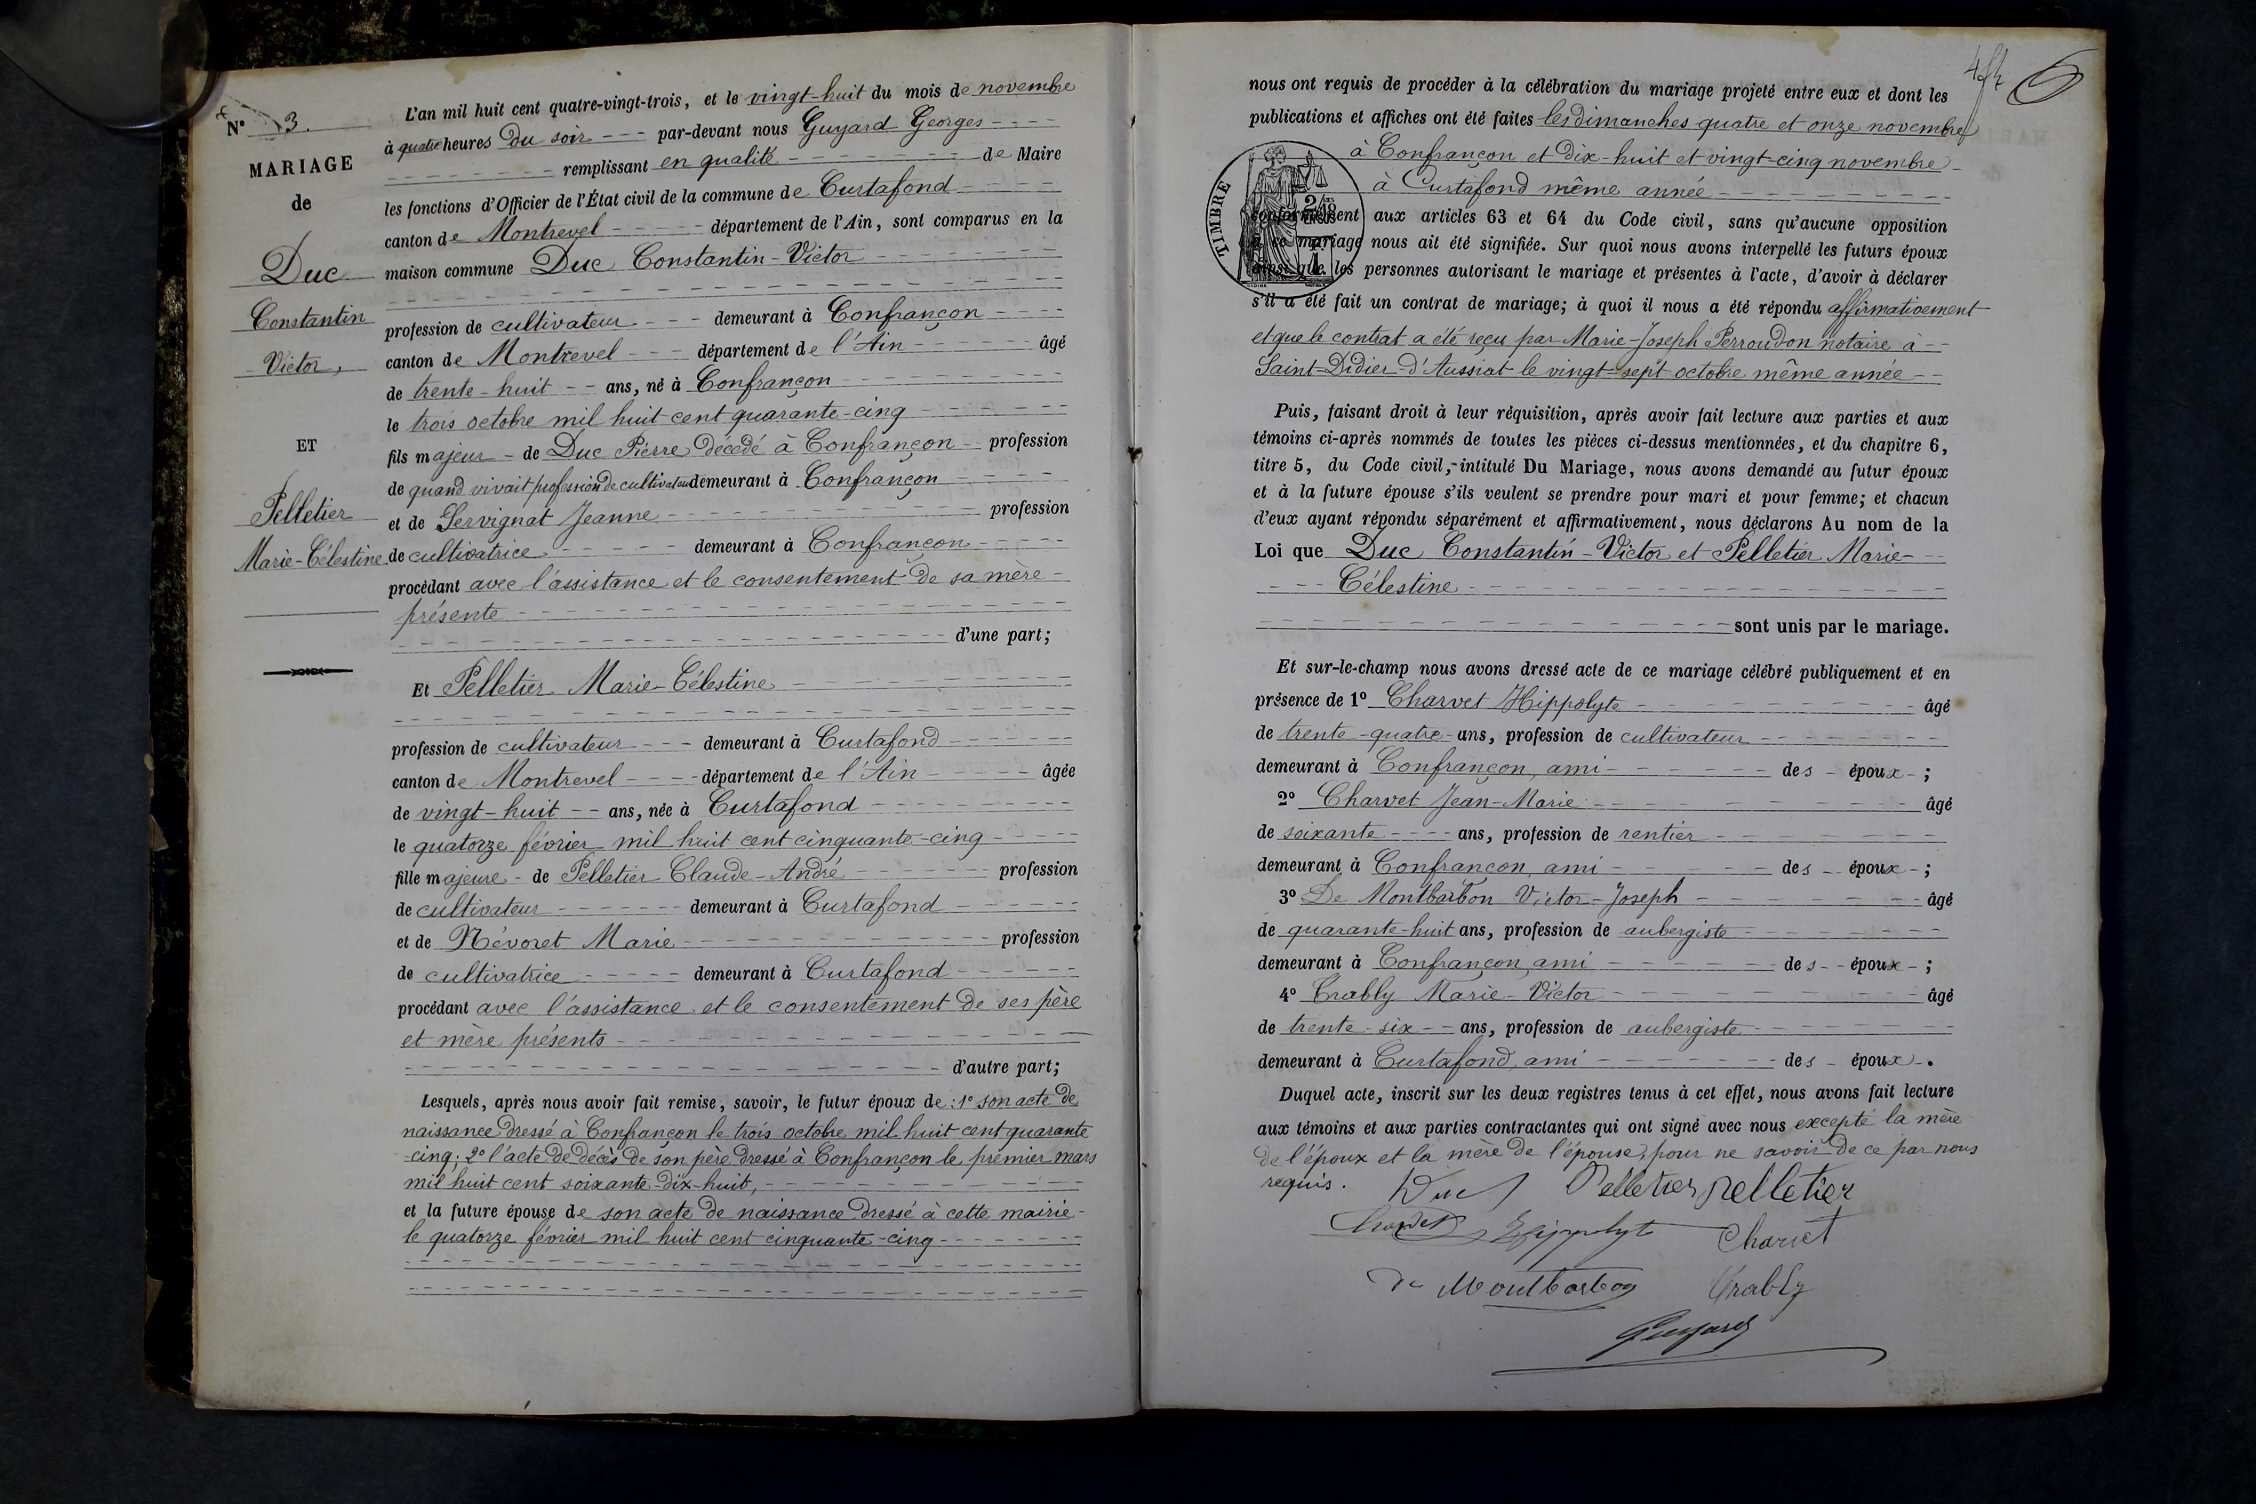 N° 3.
MARIAGE
de
Duc
Constantin
Victor,
ET
Pelletier
Marie-Célestine
L'an mil huit cent quatre-vingt-trois, et le vingt-huit du mois de novembre
à quatre heures du soir par-devant nous Guyard Georges
remplissant en qualité de Maire
les fonctions d'Officier de l'État civil de la commune de Curtafond
canton de Montrevel département de l'Ain, sont comparus en la
maison commune Duc Constantin-Victor
profession de cultivateur demeurant à Confrançon
canton de Montrevel département de l'Ain âgé
de trente-huit ans, né à Confrançon
le trois octobre mil huit cent quarante-cinq
fils majeur de Duc Pierre décédé à Confrançon profession
de quand vivait profession de cultivateur demeurant à Confrançon
et de Servignat Jeanne profession
de cultivatrice demeurant à Confrançon
procédant avec l'assistance et le consentement de sa mère
présente
d'une part;
Et Pelletier Marie-Célestine
profession de cultivateur demeurant à Curtafond
canton de Montrevel département de l'Ain âgée
de vingt-huit ans, née à Curtafond
le quatorze février mil huit cent cinquante-cinq
fille majeure de Pelletier Claude-André profession
de cultivateur demeurant à Curtafond
et de Névoret Marie profession
de cultivatrice demeurant à Curtafond
procédant avec l'assistance et le consentement de ses père
et mère présents
d'autre part;
Lesquels, après nous avoir fait remise, savoir, le futur époux de: 1° son acte de
naissance dressé à Confrançon le trois octobre mil huit cent quarante
-cinq; 2° l'acte de décès de son père dressé à Confrançon le premier mars
mil huit cent soixante-dix-huit,
et la future épouse de son acte de naissance dressé à cette mairie
le quatorze février mil huit cent cinquante-cinq
6
nous ont requis de procéder à la célébration du mariage projeté entre eux et dont les
publications et affiches ont été faites les dimanches quatre et onze novembre
à Confrançon et dix-huit et vingt-cinq novembre
à Curtafond même année
TIMBRE
conformément aux articles 63 et 64 du Code civil, sans qu'aucune opposition
à ce mariage nous ait été signifiée. Sur quoi nous avons interpellé les futurs époux
ainsi que les personnes autorisant le mariage et présentes à l'acte, d'avoir à déclarer
s'il a été fait un contrat de mariage; à quoi il nous a été répondu affirmativement
et que le contrat a été reçu par Marie-Joseph Perroudon notaire à
Saint-Didier-d'Aussiat le vingt-sept octobre même année
Puis, faisant droit à leur réquisition, après avoir fait lecture aux parties et aux
témoins ci-après nommés de toutes les pièces ci-dessus mentionnées, et du chapitre 6,
titre 5, du Code civil, intitulé Du Mariage, nous avons demandé au futur époux
et à la future épouse s'ils veulent se prendre pour mari et pour femme; et chacun
d'eux ayant répondu séparément et affirmativement, nous déclarons Au nom de la
Loi que Duc Constantin-Victor et Pelletier Marie-
Célestine
sont unis par le mariage.
Et sur-le-champ nous avons dressé acte de ce mariage célébré publiquement et en
présence de 1° Charvet Hippolyte âgé
de trente-quatre ans, profession de cultivateur
demeurant à Confrançon, ami des époux;
2° Charvet Jean-Marie âgé
de soixante ans, profession de rentier
demeurant à Confrançon, ami des époux;
3° De Montbarbon Victor-Joseph âgé
de quarante-huit ans, profession de aubergiste
demeurant à Confrançon, ami des époux;
4° Crably Marie-Victor âgé
de trente-six ans, profession de aubergiste
demeurant à Curtafond, ami des époux.
Duquel acte, inscrit sur les deux registres tenus à cet effet, nous avons fait lecture
aux témoins et aux parties contractantes qui ont signé avec nous excepté la mère
de l'époux et la mère de l'épouse, pour ne savoir de ce par nous
requis. Duc Pelletier pelletier
Charvet Hippolyte Charvet
de Montbarbon Crably
Guyard